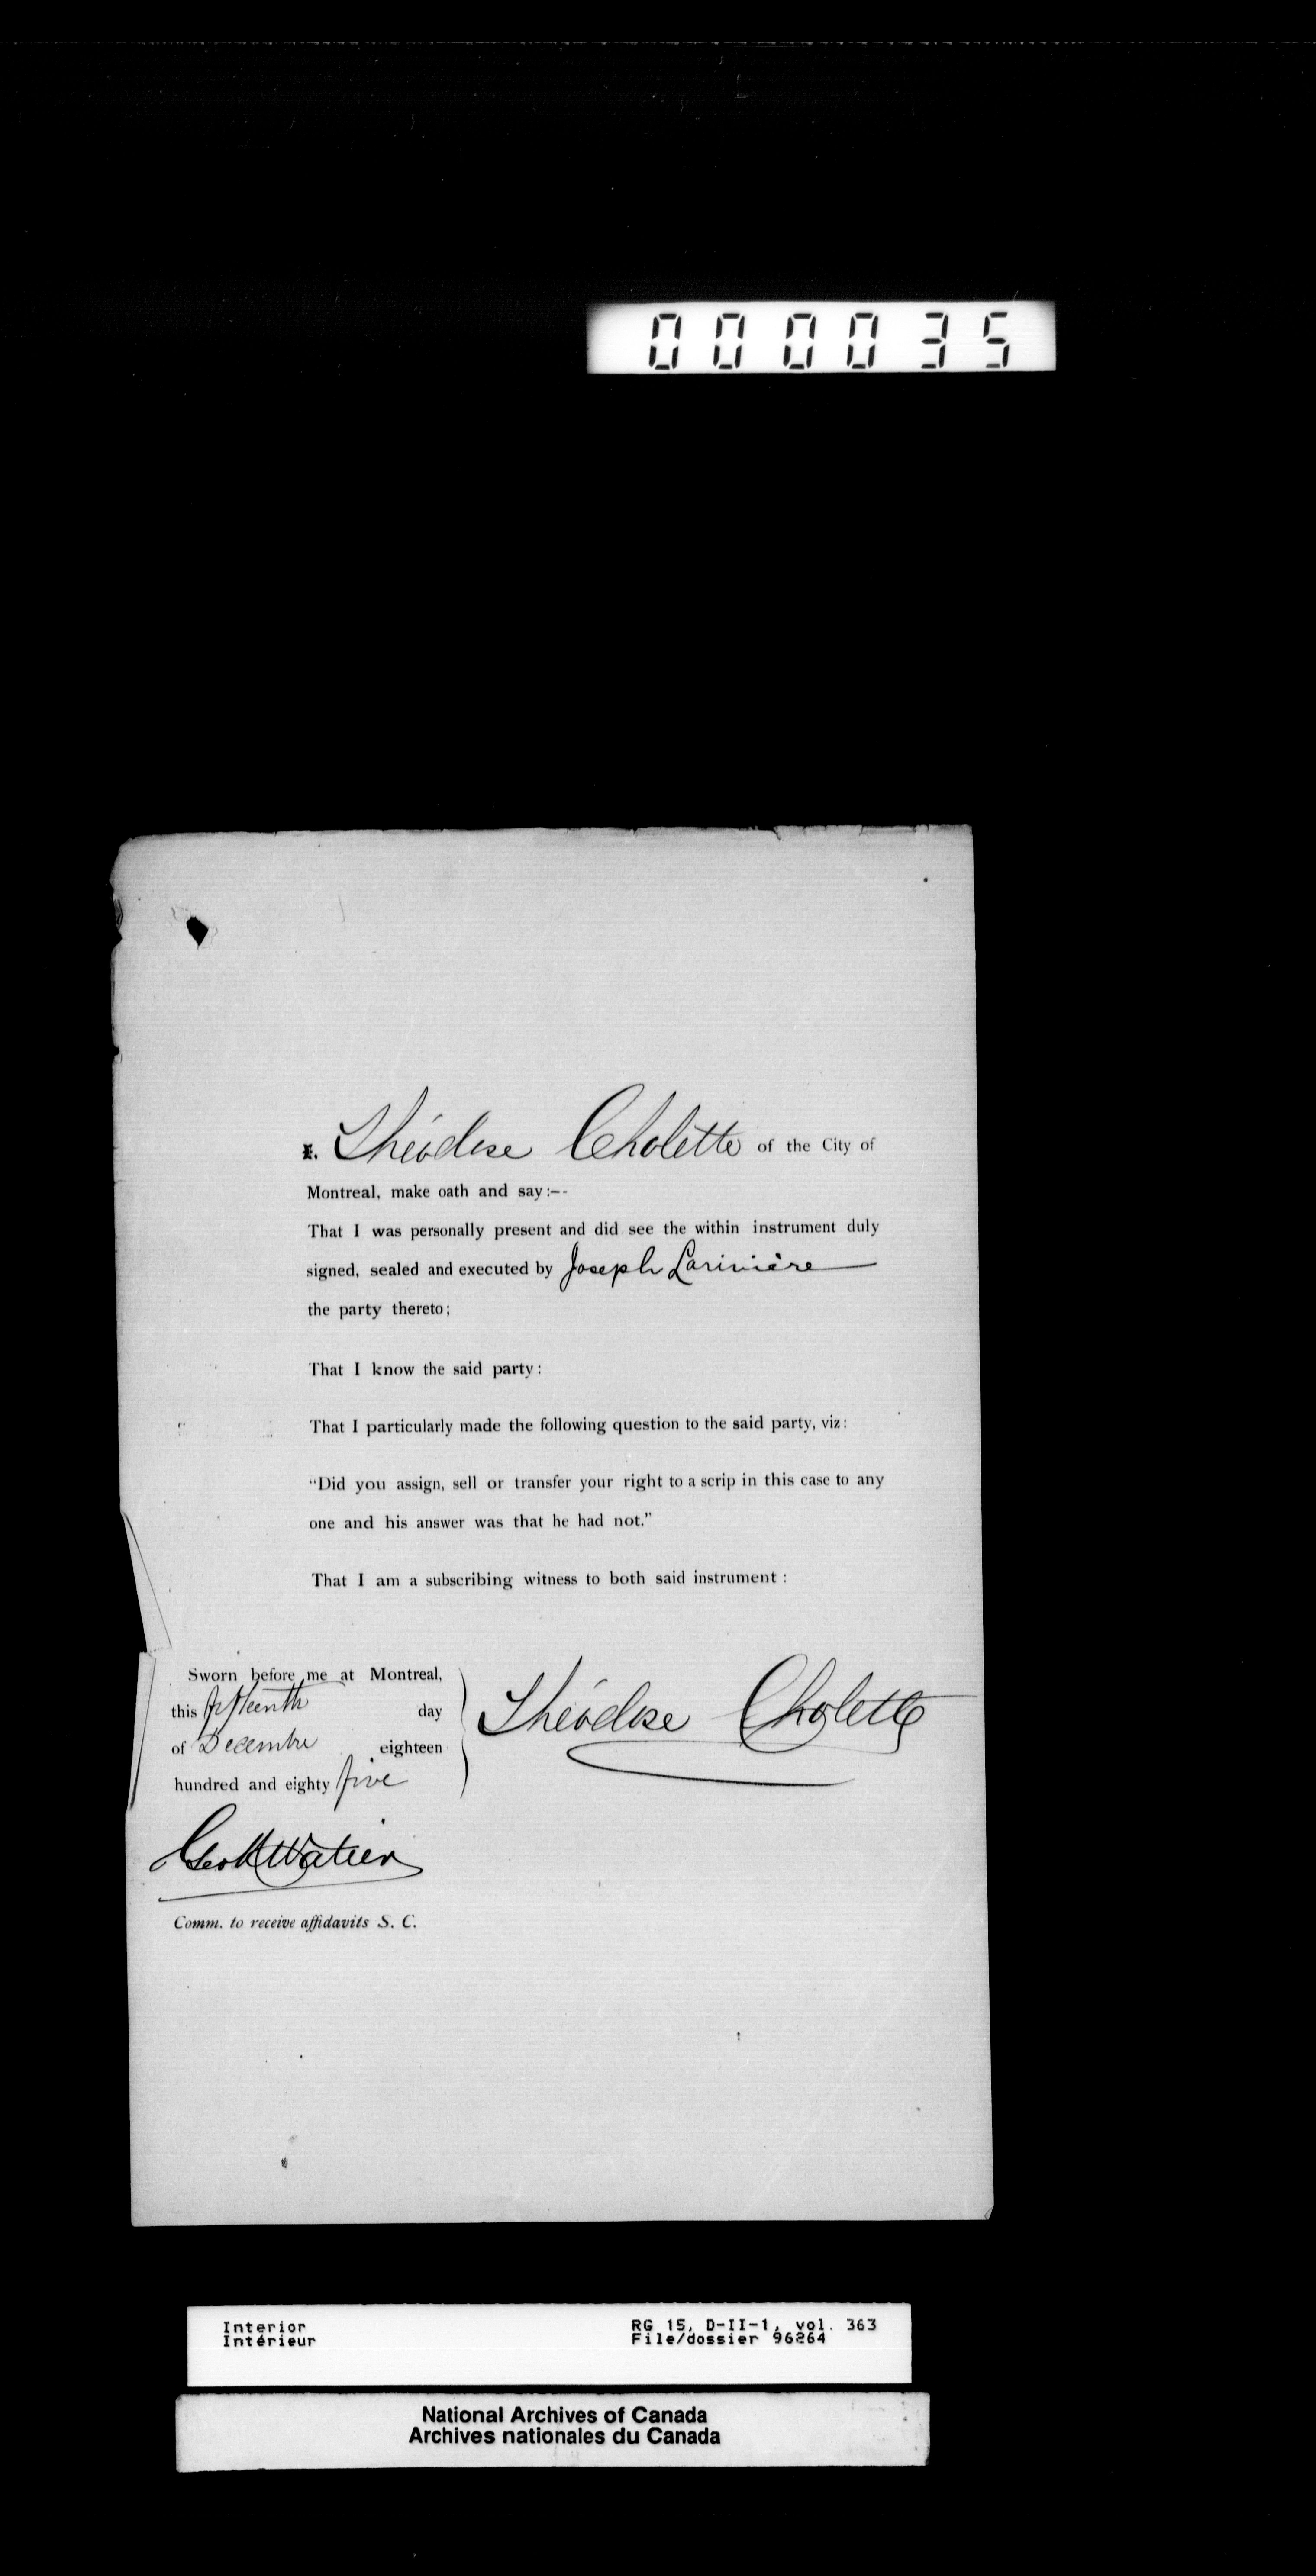 000035
I. Théodose Cholette of the City of
Montreal, make oath and say:--
That I was personally present and did see the within instrument duly
signed, sealed and executed by Joseph Larivière
the party thereto;
That I know the said party:
That I particularly made the following question to the said party, viz:
"Did you assign, sell or transfer your right to a scrip in this case to any
one and his answer was that he had not."
That I am a subscribing witness to both said instrument:
Sworn before me at Montreal,
this fifteenth day
of Decembre eighteen
hundred and eighty five
Théodose Cholette
Geo H Watier
Comm. to receive affidavits S. C.
Interior
Intérieur
RG 15, D-II-1, vol. 363
File/dossier 96264
National Archives of Canada
Archives nationales du Canada